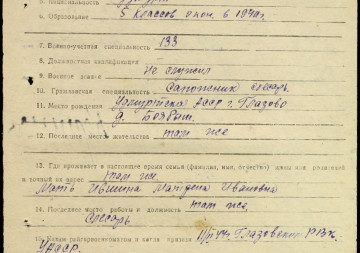 5. Национальность
6. Образование 5 классов окон. в 1940г.
7. Военно-учетная специальность 133
8. Должностная квалификация
9. Военное звание Не служил
10. Гражданская специальность Сапожник слесарь.
11. Место рождения АССР г. Глазово
д.
12. Последнее место жительства там же
13. Где проживает в настоящее время семья (фамилия, имя, отчество) жены или родителей
и точный их адрес там же,
Мать Ившина Матрена Ивановна
14. Последнее место работы и должность там же,
Слесарь
15. Каким райгорвоенкоматом и когда призван Глазовский РВК.
УАССР.